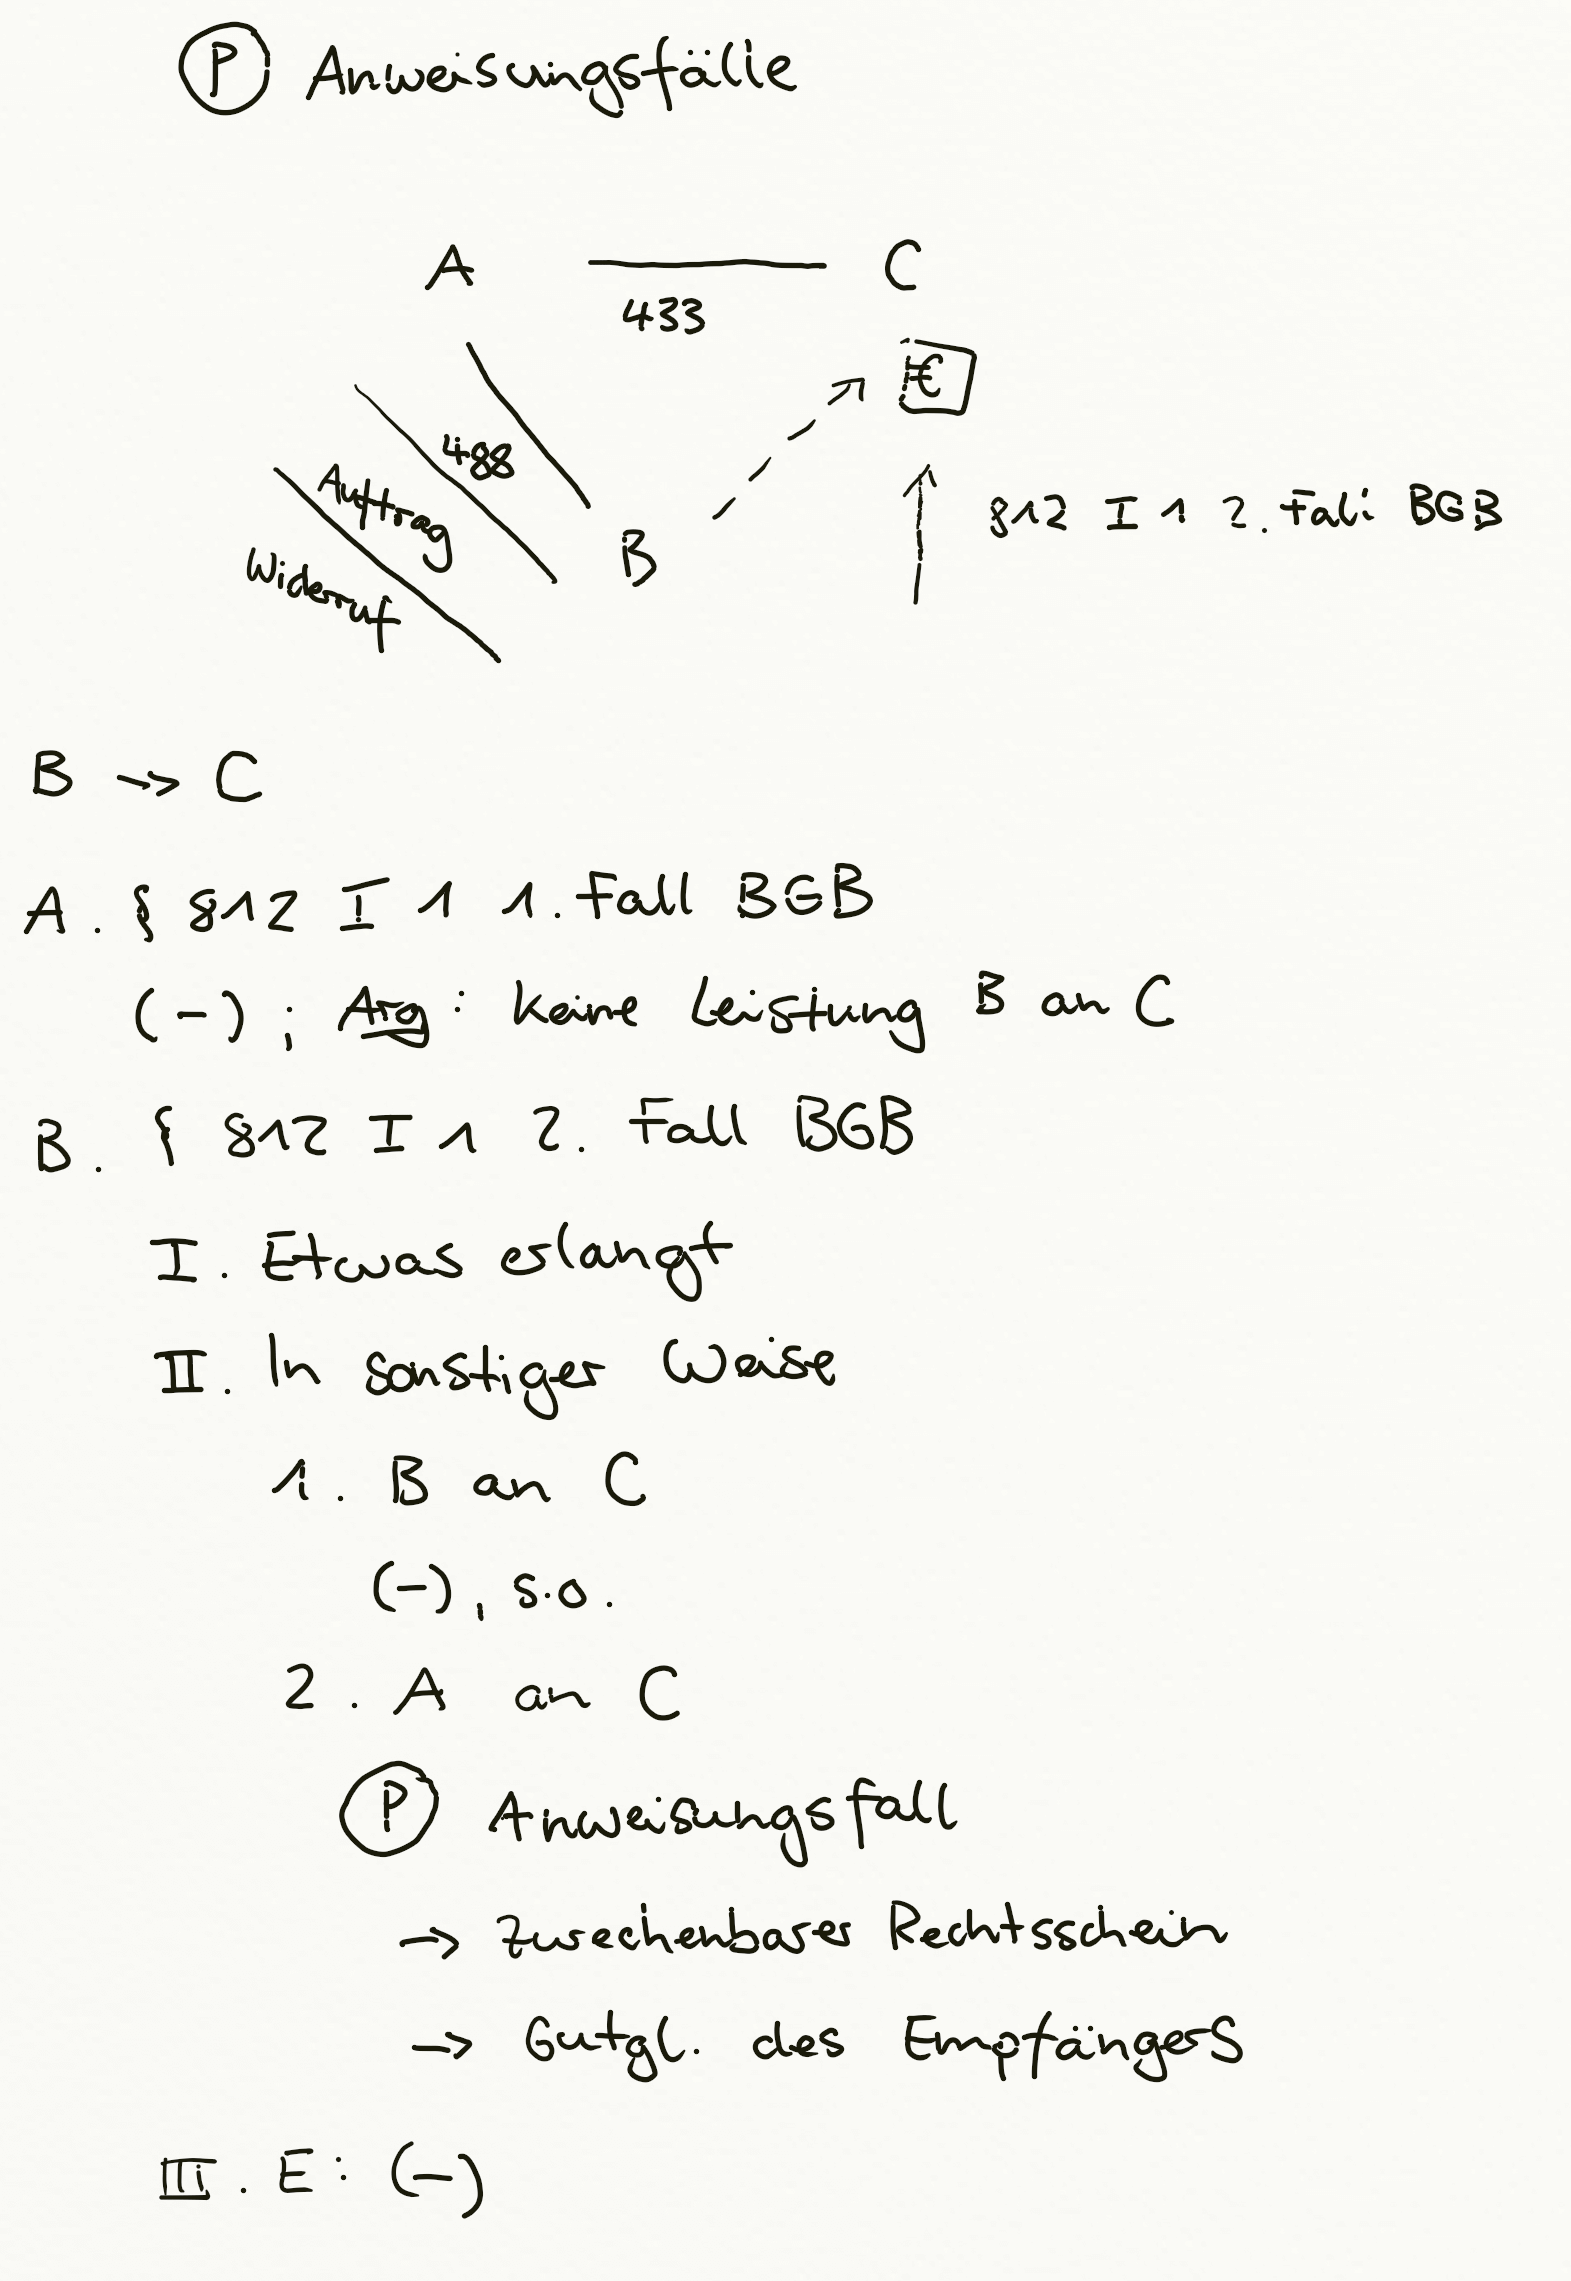 P Anweisungsfälle
A C
433
€
488
Auftrag
Widerruf
B
812 I 1 2. Fall BGB
B → C
A. § 812 I 1 1. Fall BGB
(-); Arg: Keine Leistung B an C
B. § 812 I 1 2. Fall BGB
I. Etwas erlangt
II. In sonstiger Weise
1. B an C
(-), s.o.
2. A an C
P Anweisungsfall
→ Zurechenbarer Rechtsschein
→ Gutgl. des Empfängers
III. E: (-)